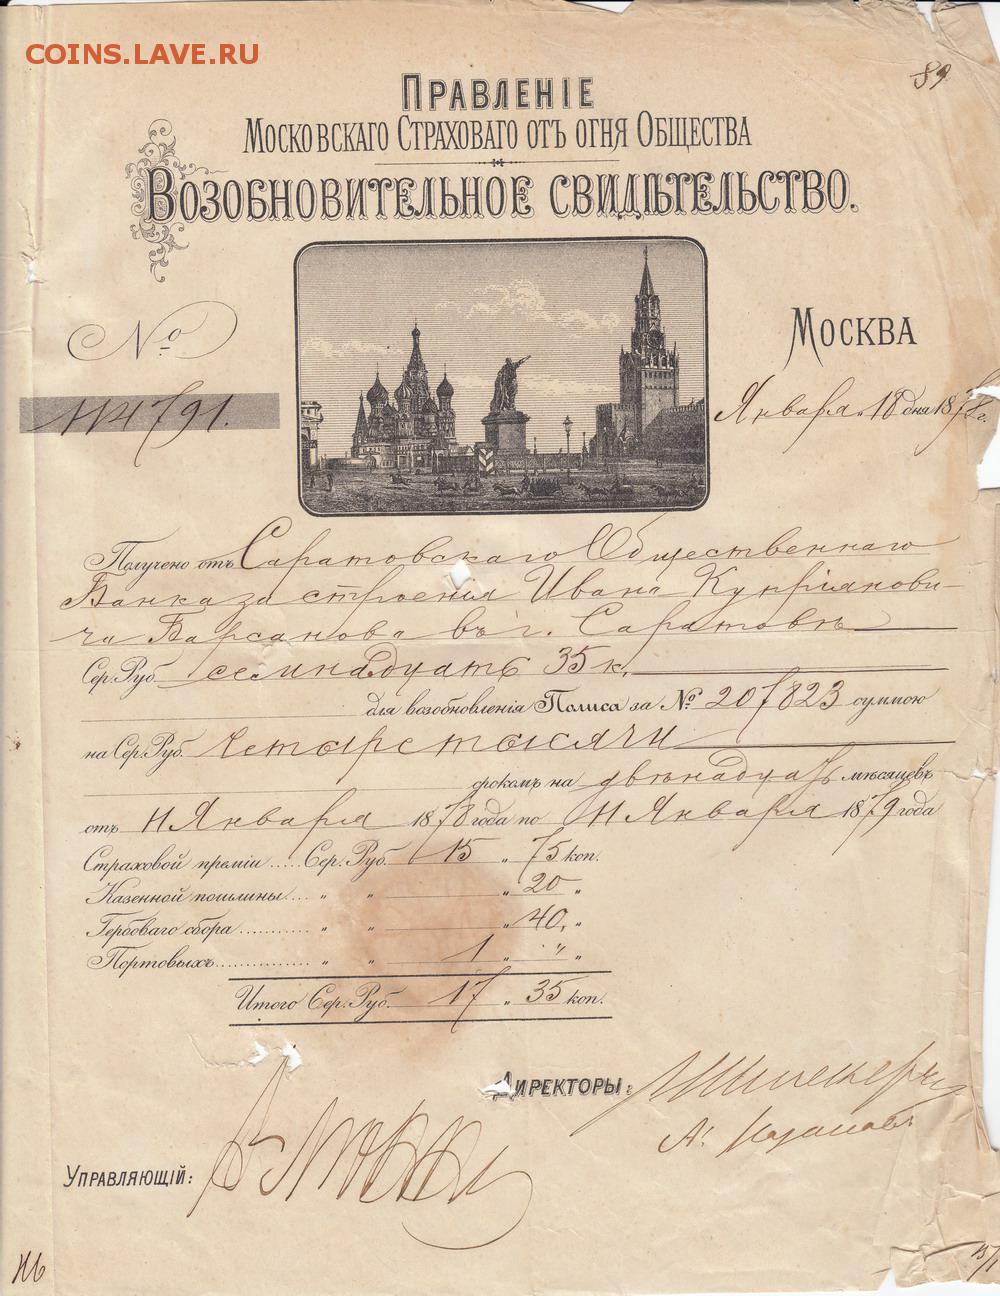 COINS.LAVE.RU
89
Правленіе
Московскаго Страховаго отъ огня Общества
Возобновительное свидѣтельство.
№
114791.
Москва
Января 18 дня 1878 г.
Получено отъ Саратовскаго Общественнаго
Банка за строенія Ивана Купріянови-
ча Барсанова въ г. Саратовѣ
Сер. Руб. семнадцать 35 к.
для возобновленія Полиса за № 207823 суммою
на Сер. Руб. Четыре тысячи
срокомъ на двѣнадцать мѣсяцевъ
отъ 11 Января 1878 года по 11 Января 1879 года
Страховой преміи ..... Сер. Руб. 15 „ 75 коп.
Казенной пошлины ... „ „ „ 20 „
Гербоваго сбора ........... „ „ „ 40, „
Портовыхъ ............... „ „ 1 „ „ „
Итого Сер. Руб. 17 „ 35 коп.
Директоры:
Управляющій: